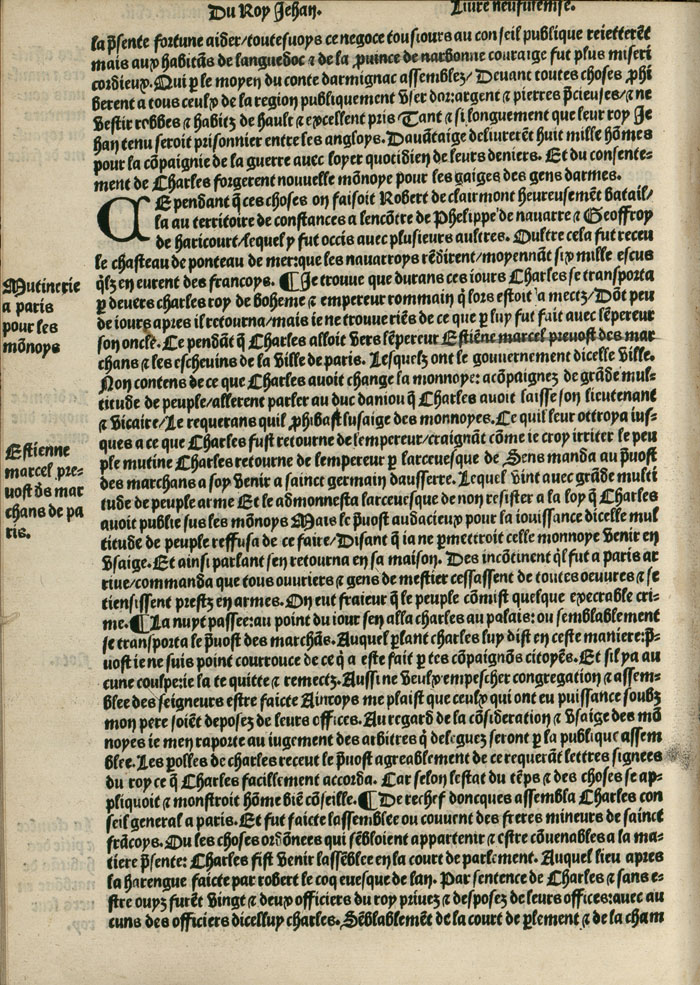 Du Roy Jehan.
Livre neufuiesme.
la p̃sente fortune aider/toutesuoys ce negoce tousiours au conseil publique reietterẽt
mais aux habitãs de languedoc ⁊ de la ꝓuince de narbonne couraige fut plus miseri
cordieux. Qui ꝑ le moyen du conte darmignac assemblez/ Deuant toutes choses ꝓhi
berent a tous ceulx de la region publiquement vser dor: argent ⁊ pierres p̃cieuses/ ⁊ ne
vestir robbes ⁊ habitz de hault ⁊ excellent pris Tant ⁊ si longuement que leur roy Je
han tenu seroit prisonnier entre les angloys. Dauãtaige deliureręt huit mille hõmes
pour la cõpaignie de la guerre auec loyer quotidien de leurs deniers. Et du consente-
ment de Charles forgerent nouuelle mõnoye pour les gaiges des gens darmes.
CE pendant q̃ ces choses on faisoit Robert de clairmont heureusemẽt batail/
la au territoire de constances a lencõtre de Phelippe de nauarre ⁊ Geoffroy
de haricourt/lequel y fut occis auec plusieurs aultres. Oultre cela fut receu
le chasteau de ponteau de mer: que les nauarroys rẽdirent/moyennãt six mille escus
q̃lz en eurent des francoys. ¶Je trouue que durans ces iours Charles se transporta
ꝑ deuers charles roy de boheme ⁊ empereur rommain q̃ lors estoit a metz/ Dõt peu
de iours apres il retourna/mais ie ne trouue riẽs de ce que ꝑ luy fut fait auec lẽpereur
son oncle. Ce pendãt q̃ Charles alloit vers lẽpereur Estiẽne marcel preuost des mar
chans ⁊ les escheuins de la ville de paris. Lesquelz ont le gouuernement dicelle ville.
Non contens de ce que Charles auoit change la monnoye: acõpaignez de grãde mul-
titude de peuple/allerent parler au duc daniou q̃ Charles auoit laisse son lieutenant
⁊ vicaire/Le requerans quil ꝓhibast lusaige des monnoyes. Ce quil leur ottroya ius-
ques a ce que Charles fust retourne de lempereur/craignãt cõme ie croy irriter le peu
ple mutine Charles retourne de lempereur ꝑ larceuesque de Sens manda au p̃uost
des marchans a soy venir a sainct germain dausserre. Lequel vint auec grãde multi
tude de peuple arme Et le admonnesta larceuesque de non resister a la loy q̃ Charles
auoit publie sus les mõnoys Mais le p̃uost audacieux pour la iouissance dicelle mul
titude de peuple reffusa de ce faire/ Disant q̃ ia ne ꝑmettroit celle monnoye venir en
vsaige. Et ainsi parlant sen retourna en sa maison. Des incõtinent q̃l fut a paris ar
riue/commanda que tous ouuriers ⁊ gens de mestier cessassent de toutes oeuures ⁊ se
tiensissent prestz en armes. On eut fraieur q̃ le peuple cõmist quelque execrable cri-
me. ¶La nuyt passee: au point du iour sen alla charles au palais: ou semblablement
se transporta le p̃uost des marchãs. Auquel ꝑlant charles luy dist en ceste maniere: p̃-
uost ie ne suis point courrouce de ce q̃ a este fait ꝑ tes cõpaignõs citoyẽs. Et sil ya au
cune coulpe: ie la te quitte ⁊ remectz. Aussi ne veulx empescher congregation ⁊ assem-
blee des seigneurs estre faicte Aincoys me plaist que ceulx qui ont eu puissance soubz
mon pere soiẽt deposez de leurs offices. Au regard de la cõsideration ⁊ vsaige des mõ
noyes ie men raporte au iugement des arbitres q̃ deleguez seront ꝑ la publique assem
blee. Les polles de charles receut le p̃uost agreablement de ce requerãt lettres signees
du roy ce q̃ Charles facillement accorda. Car selon lestat du tẽps ⁊ des choses se ap-
pliquoit ⁊ monstroit hõme biẽ cõseille. ¶De rechef doncques assembla Charles con
seil general a paris. Et fut faicte lassemblee ou couuent des freres mineurs de sainct
frãcoys. Ou les choses ordõnees qui sẽbloient appartenir ⁊ estre cõuenables a la ma-
tiere p̃sente: Charles fist venir lassẽblee en la court de parlement. Auquel lieu apres
la harengue faicte par robert le coq euesque de lan. Par sentence de Charles ⁊ sans e-
stre ouyz furẽt vingt ⁊ deux officiers du roy priuez ⁊ desposez de leurs offices: auec au
cuns des officiers dicelluy charles. Sẽblablemẽt de la court de ꝑlement ⁊ de la cham
Mutinerie
a paris
pour les
mõnoys
Estienne
marcel pre-
uost ds mar
chans de pa
ris.